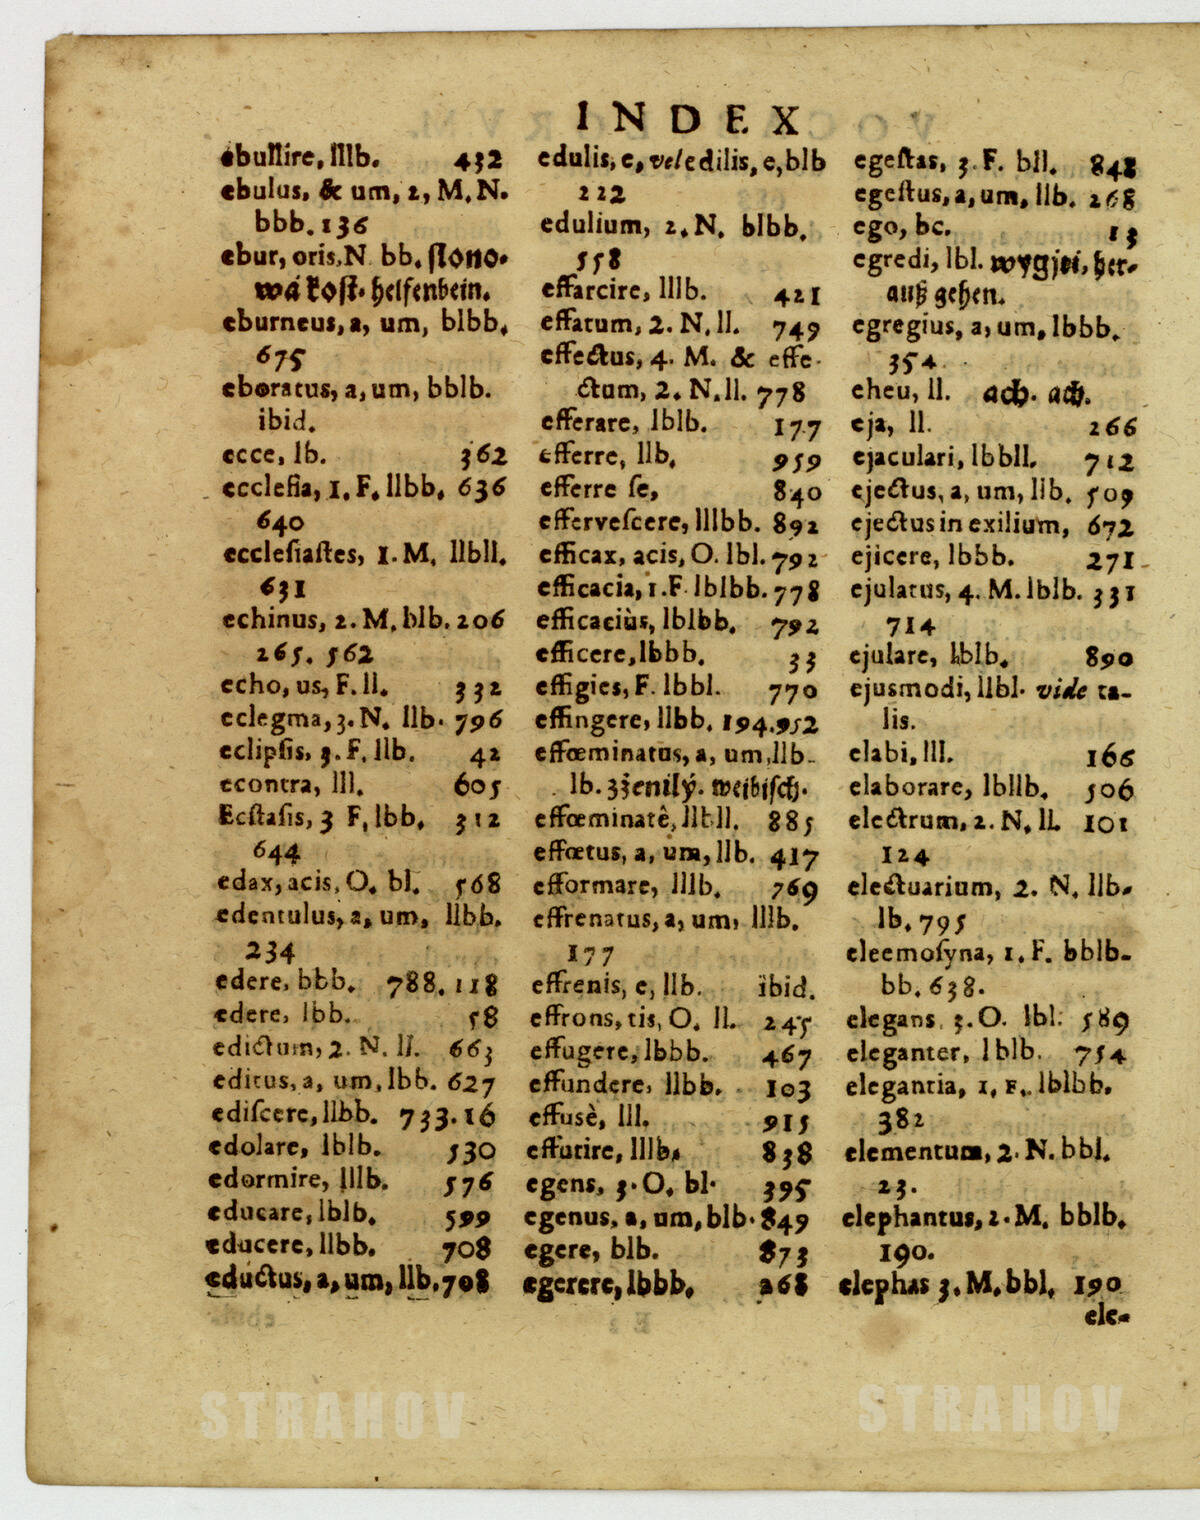 INDEX
ebullire, lllb. 432
ebulus, & um, 2, M, N.
bbb. 136
ebur, oris, N bb. slono-
wá kost. helfenbein.
eburneus, a, um, blbb.
675
eboratus, a, um, bblb.
ibid.
ecce, lb. 362
ecclesia, 1. F. llbb. 636
640
ecclesiastes, 1. M. llbll.
631
echinus, 2. M. blb. 206
265. 562
echo, us, F. ll. 332
eclegma, 3. N. llb. 796
eclipsis, 3. F. llb. 42
econtra, lll. 605
Ecstasis, 3 F, lbb. 312
644
edax, acis, O. bl. 568
edentulus, a, um, llbb.
234
edere, bbb. 788. 118
edere, lbb. 58
edictum, 2. N. ll. 663
editus, a, um, lbb. 627
ediscere, llbb. 733. 16
edolare, lblb. 530
edormire, lllb. 576
educare, lblb. 599
educere, llbb. 708
eductus, a, um, llb. 708
edulis, e, vel edilis, e, blb
222
edulium, 2. N. blbb.
558
effarcire, lllb. 421
effatum, 2. N. ll. 749
effectus, 4. M. & effe-
ctum, 2. N. ll. 778
efferare, lblb. 177
efferre, llb. 959
efferre se, 840
effervescere, lllbb. 892
efficax, acis, O. lbl. 792
efficacia, 1. F. lblbb. 778
efficaciùs, lblbb. 792
efficere, lbbb. 33
effigies, F. lbbl. 770
effingere, llbb. 194. 952
effœminatus, a, um, llb-
lb. zženilý. weibisch.
effœminatê, llbll. 885
effœtus, a, um, llb. 417
efformare, lllb. 769
effrenatus, a, um, lllb.
177
effrenis, e, llb. ibid.
effrons, tis, O. ll. 245
effugere, lbbb. 467
effundere, llbb. 103
effusè, lll. 915
effutire, lllb. 838
egens, 3. O. bl. 395
egenus, a, um, blb. 849
egere, blb. 873
egerere, lbbb. 268
egestas, 3. F. bll. 848
egestus, a, um, llb. 268
ego, bc. 13
egredi, lbl. wygjti, her-
auß gehen.
egregius, a, um, lbbb.
354
eheu, ll. ach. ach.
eja, ll. 266
ejaculari, lbbll. 712
ejectus, a, um, llb. 509
ejectus in exilium, 672
ejicere, lbbb. 271
ejulatus, 4. M. lblb. 331
714
ejulare, lblb. 890
ejusmodi, llbl. vide ta-
lis.
elabi, lll. 166
elaborare, lbllb. 506
electrum, 2. N. ll. 101
124
electuarium, 2. N. llb-
lb. 795
eleemosyna, 1. F. bblb-
bb. 638.
elegans, 3. O. lbl. 589
eleganter, lblb. 754
elegantia, 1, F. lblbb.
382
elementum, 2. N. bbl.
23.
elephantus, 2. M. bblb.
190.
elephas 3. M. bbl. 190
ele-
STRAHOV STRAHOV